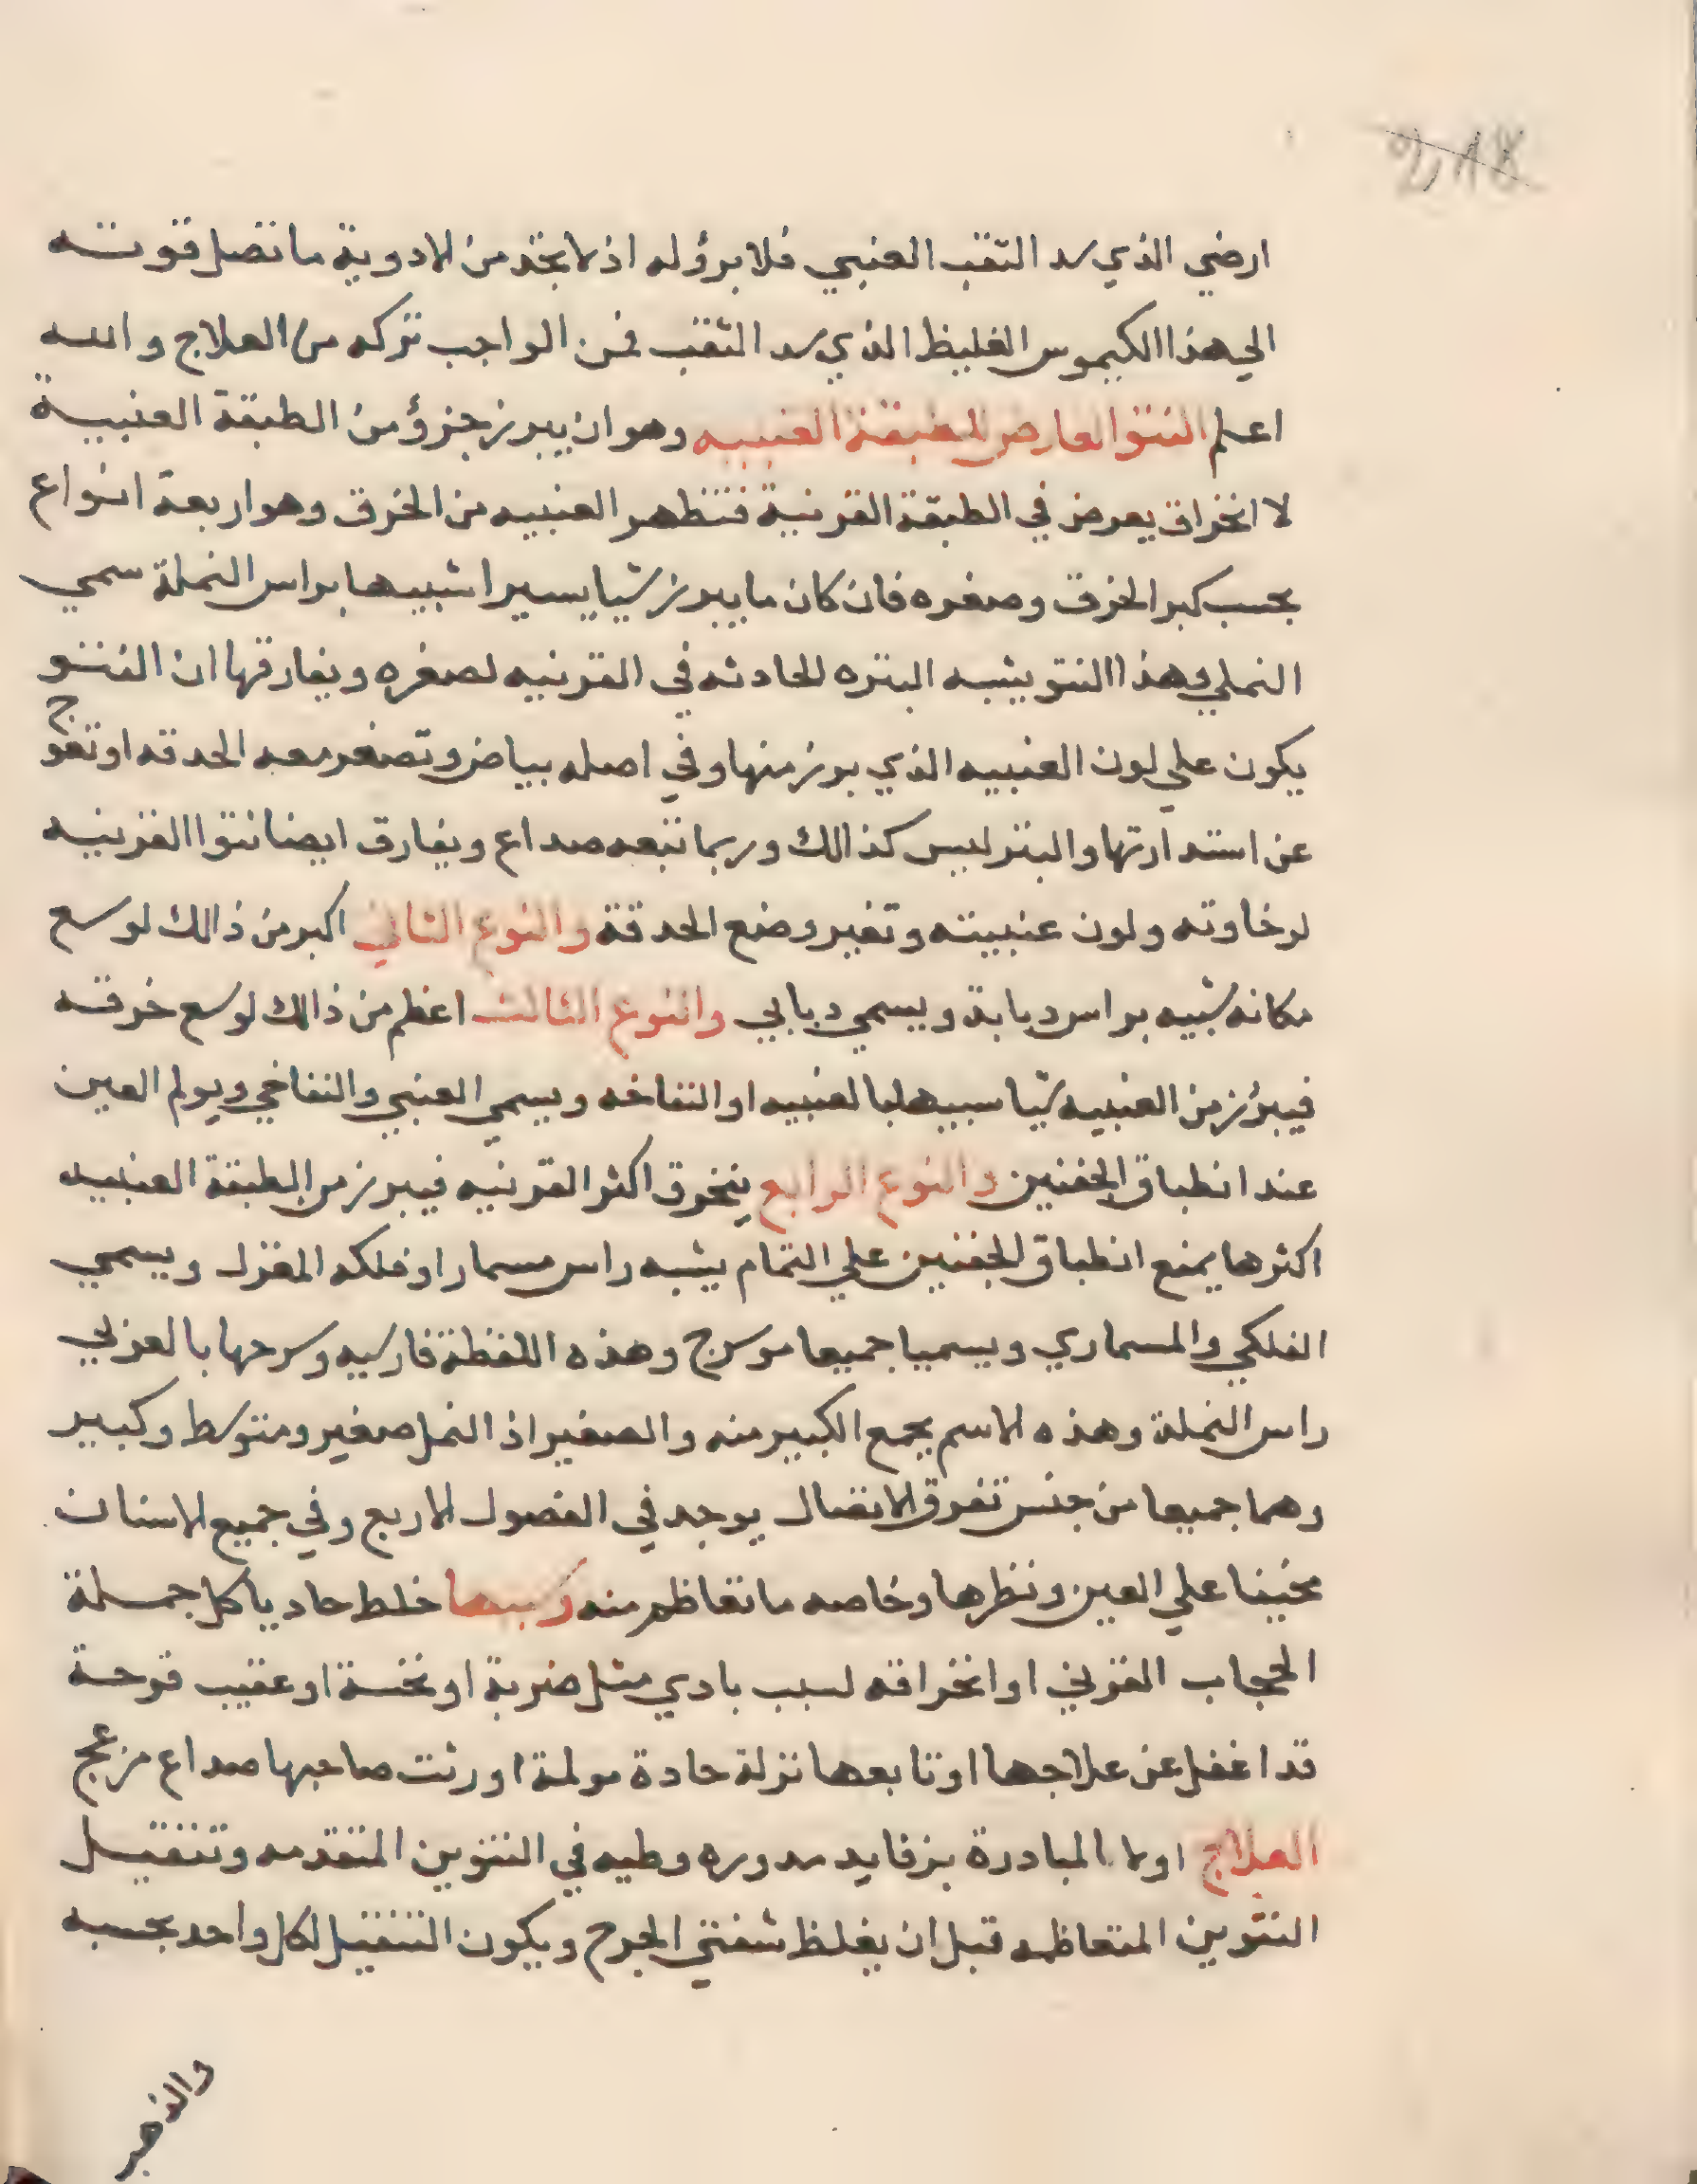 ارضي الذي سد الثقب العنبي فلا برؤ له اذ لا تجد من الادوية ما تصل قوته
الي هذا الكيموس الغليظ الذي سد الثقب فمن الواجب تركه من العلاج والله
اعلم النتو العارض للطبقة العنبيه وهو ان يبرز جزؤ من الطبقة العنبية
لا انخراق يعرض في الطبقة القرنية فتظهر العنبيه من الخرق وهو اربعة انواع
بحسب كبر الخرق وصغره فان كان ما يبرز شيا يسيرا شبيها براس النملة سمي
النملي وهذا النتو يشبه البتره الحادثه في القرنيه لصغره ويفارقها ان النتو
يكون علي لون العنبيه الذي برز منها وفي اصله بياض وتصغر معه الحدقه او تعوج
عن استدارتها والبتر ليس كذالك وربما تبعه صداع ويفارق ايضا نتوا القرنيه
لرخاوته ولون عنبيته وتغير وضع الحدقة والنوع الثاني اكبر من ذالك لوسع
مكانه شبيه براس دبابة ويسمي دبابي والنوع الثالث اعظم من ذالك لوسع خرقه
فيبرؤز من العنبيه شيا سبيها بالعنبيه او النفاخه ويسمي العنبي والنفاخي ويولم العين
عند انطباق الجفنين والنوع الرابع ينخرق اكثر القرنيه فيبرز من الطبقة العنبيه
اكثرها يمنع انطباق الجفنين علي التمام يشبه راس مسمار او فلكه المغزل ويسمي
الفلكي والمسماري ويسميا جميعا موسرج وهذه اللفظة فارسيه وسرحها بالعربي
راس النملة وهذه الاسم يجمع الكبير منه والصغير اذ النمل صغير ومتوسط وكبير
وهما جميعا من جنس تفرق الاتصال يوجد في الفصول الاربع وفي جميع الاسنان
مخيفا علي العين ونظرها وخاصه ما تعاظم منه وسببها خلط حاد ياكل جملة
الحجاب القرني او انخراقه لسبب بادي مثل ضربة او نخسة او عقيب قرحة
قد اغفل عن علاجها او تابعها نزلة حادة مولمة اورثت صاحبها صداع مزعج
العلاج اولا المبادرة برفايد مدوره وطيه في النتوين المتقدمه وتثقيل
النتوين المتعاظمه قبل ان يغلظ شفتي الجرح ويكون التثقيل لكل واحد بحسبه